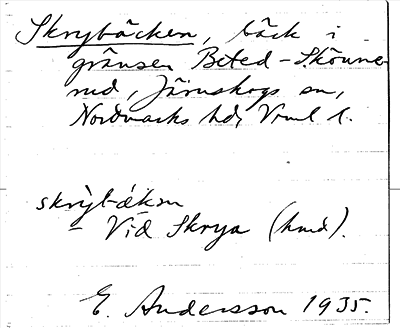 Skrybäcken, bäck i
gränsen Beted - Skönne-
rud, Järnskogs sn,
Nordmarks hd, Vrml l.
skrỳb-ä́kən
- Via Skrya (hmd).
E. Andersson 1935.